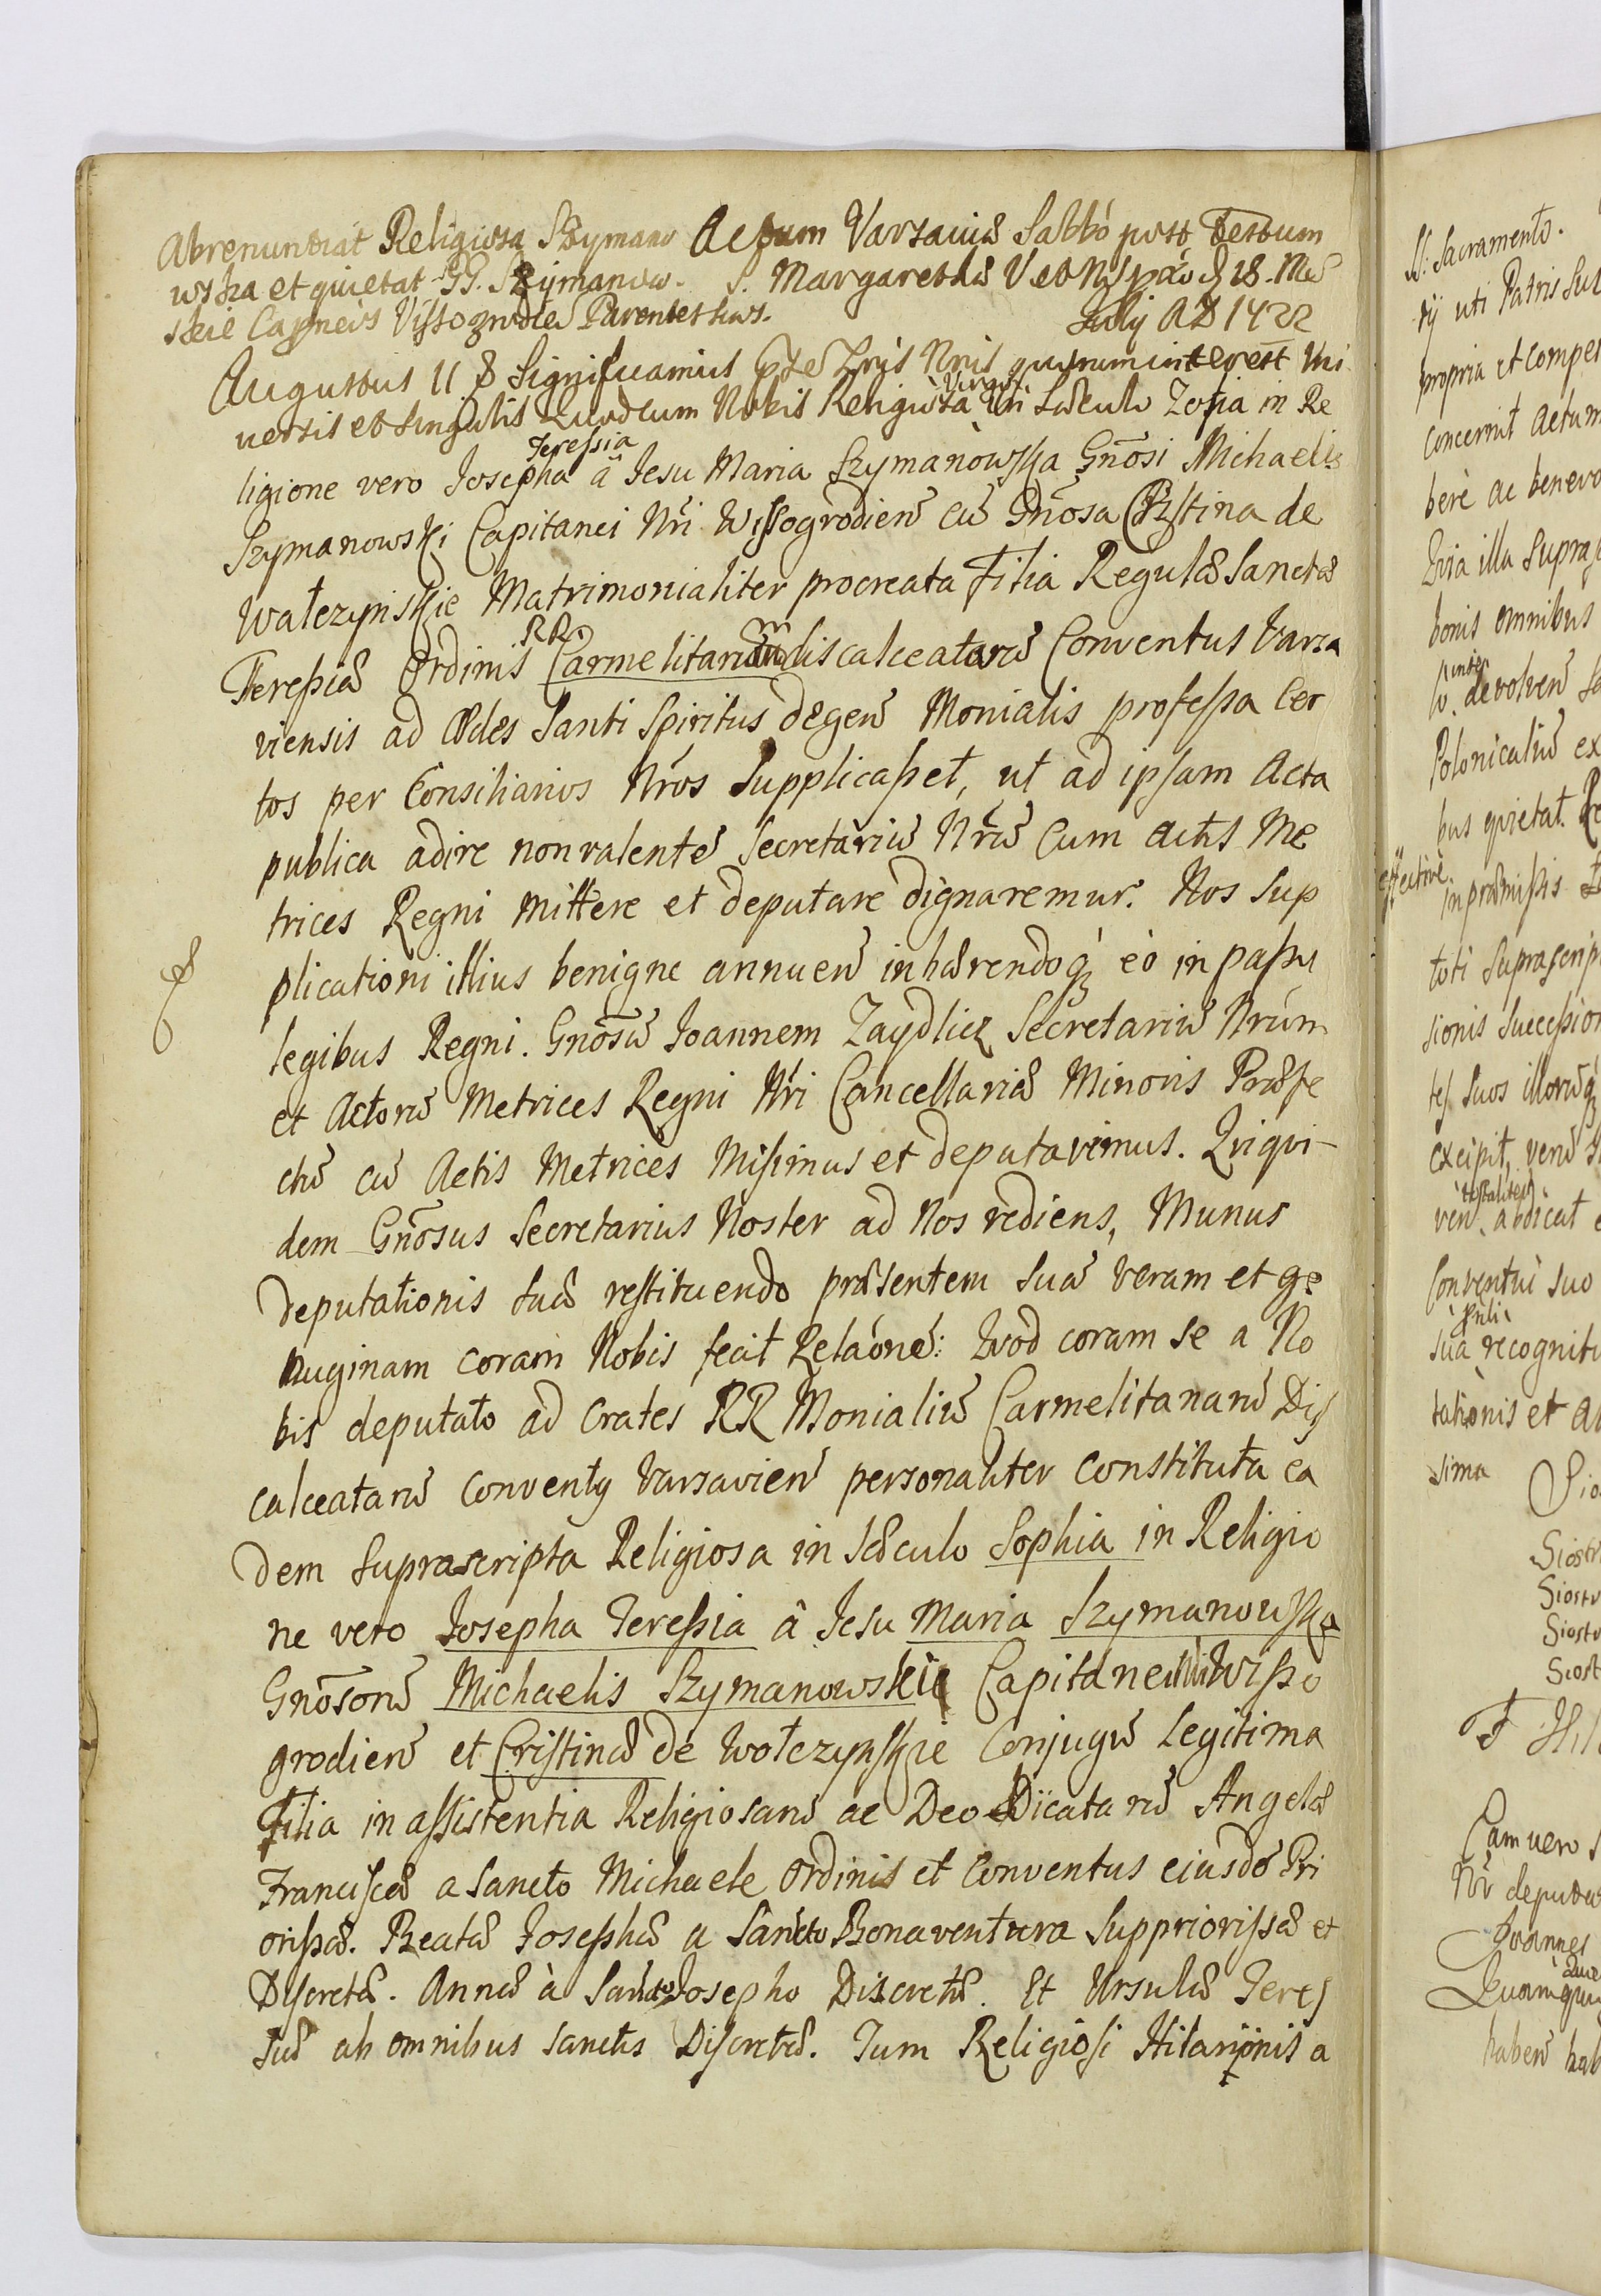 Abrenuntiat Religiosa Szymano
wska et quietat GG. Szymanow.
skie Capneos Vissogrodien Parentes suos.
Actum Varsaviæ Sabbo post Festum
S. Margarethæ V et M. d 18. Mēs
July AD 1722
Augustus II Significamus quorum interest Uni
versis et singulis Quod cum Nobis Religiosa Virgo in Sæculo Zofia in Re
ligione vero Josepha Teressia â Jesu Maria Szymanowska Gnōsi Michaelis
Szymanowski Capitanei Nri Wissogrodien̄ cū Gnōsa Crystina de
Wałczynskie Matrimonialiter procreata Filia Regulæ Sanctæ
Teressiæ Ordinis RR. Carmelitarum discalceatarū Conventus Varsa
viensis ad Ædes Santi Spiritus degen̄ Monialis professa Cer
tos per Consiliarios Nr̄os Supplicasset, ut ad ipsam Acta
publica adire non valentē Secretariū Nr̄ū Cum actis Me
trices Regni mittere et deputare dignaremur. Nos Sup
plicationi illius benigne annuen̄ inhærendoq3 eò in passu
legibus Regni. Gnōsū Joannem Zaydlicz Secretariū Nrūm
et Actorū Metrices Regni Nri Cancellariæ Minoris Præfe
ctū cū Actis Metrices Misimus et deputavimus. Qviqvi-
dem Gnōsus Secretarius Noster ad Nos rediens, Munus
deputationis suæ restituendo præsentem suā veram et ge
nuginam coram Nobis fecit Relāonē: Qvod coram se a No
bis deputato ad Crates RR Monialiū Carmelitanarū Dis
calceatarū Conventus Varsavien̄ personaliter constituta ea
dem suprascripta Religiosa in Sæculo Sophia in Religio
ne vero Josepha Teressia â Jesu Maria Szymanowska
Gnōsorū Michaelis Szymanowskie Capitanei Nri Wisso
grodien̄ et Cristinæ de Wołczynskie Conjugū Legitima
Filia in assistentia Religiosarū ac Deo Dicatarū Angelæ
Franciscæ a Sancto Michaele Ordinis et Conventus eiusdē Pri
orissæ. Beatæ Josephæ a Sancto Bonaventura Suppriorissæ et
Discretæ. Annæ à Sancto Josepho Discretæ. Et Ursulæ Teres
siæ ab omnibus Sanctis Discretæ. Tum Religiosi Hilarijonis a
SS: Sacramento.
tij uti Patris Sui
propria et Compe
concernit Actum
bere ac benevo
Qvia illa Supras
bonis omnibus
devolven̄
Polonicaliū ex
bus quietat.
effective
in præmissis
toti Suprascrip
sionis Succession
tes Suos illorūq3
excipit
totaliter
abdicat
Conventui suo
sua recognit
tationis et
sima
Siostr
Siostr
Siostr
Siost
Cam vero
Nr deputa
Joannes
haben̄ hab